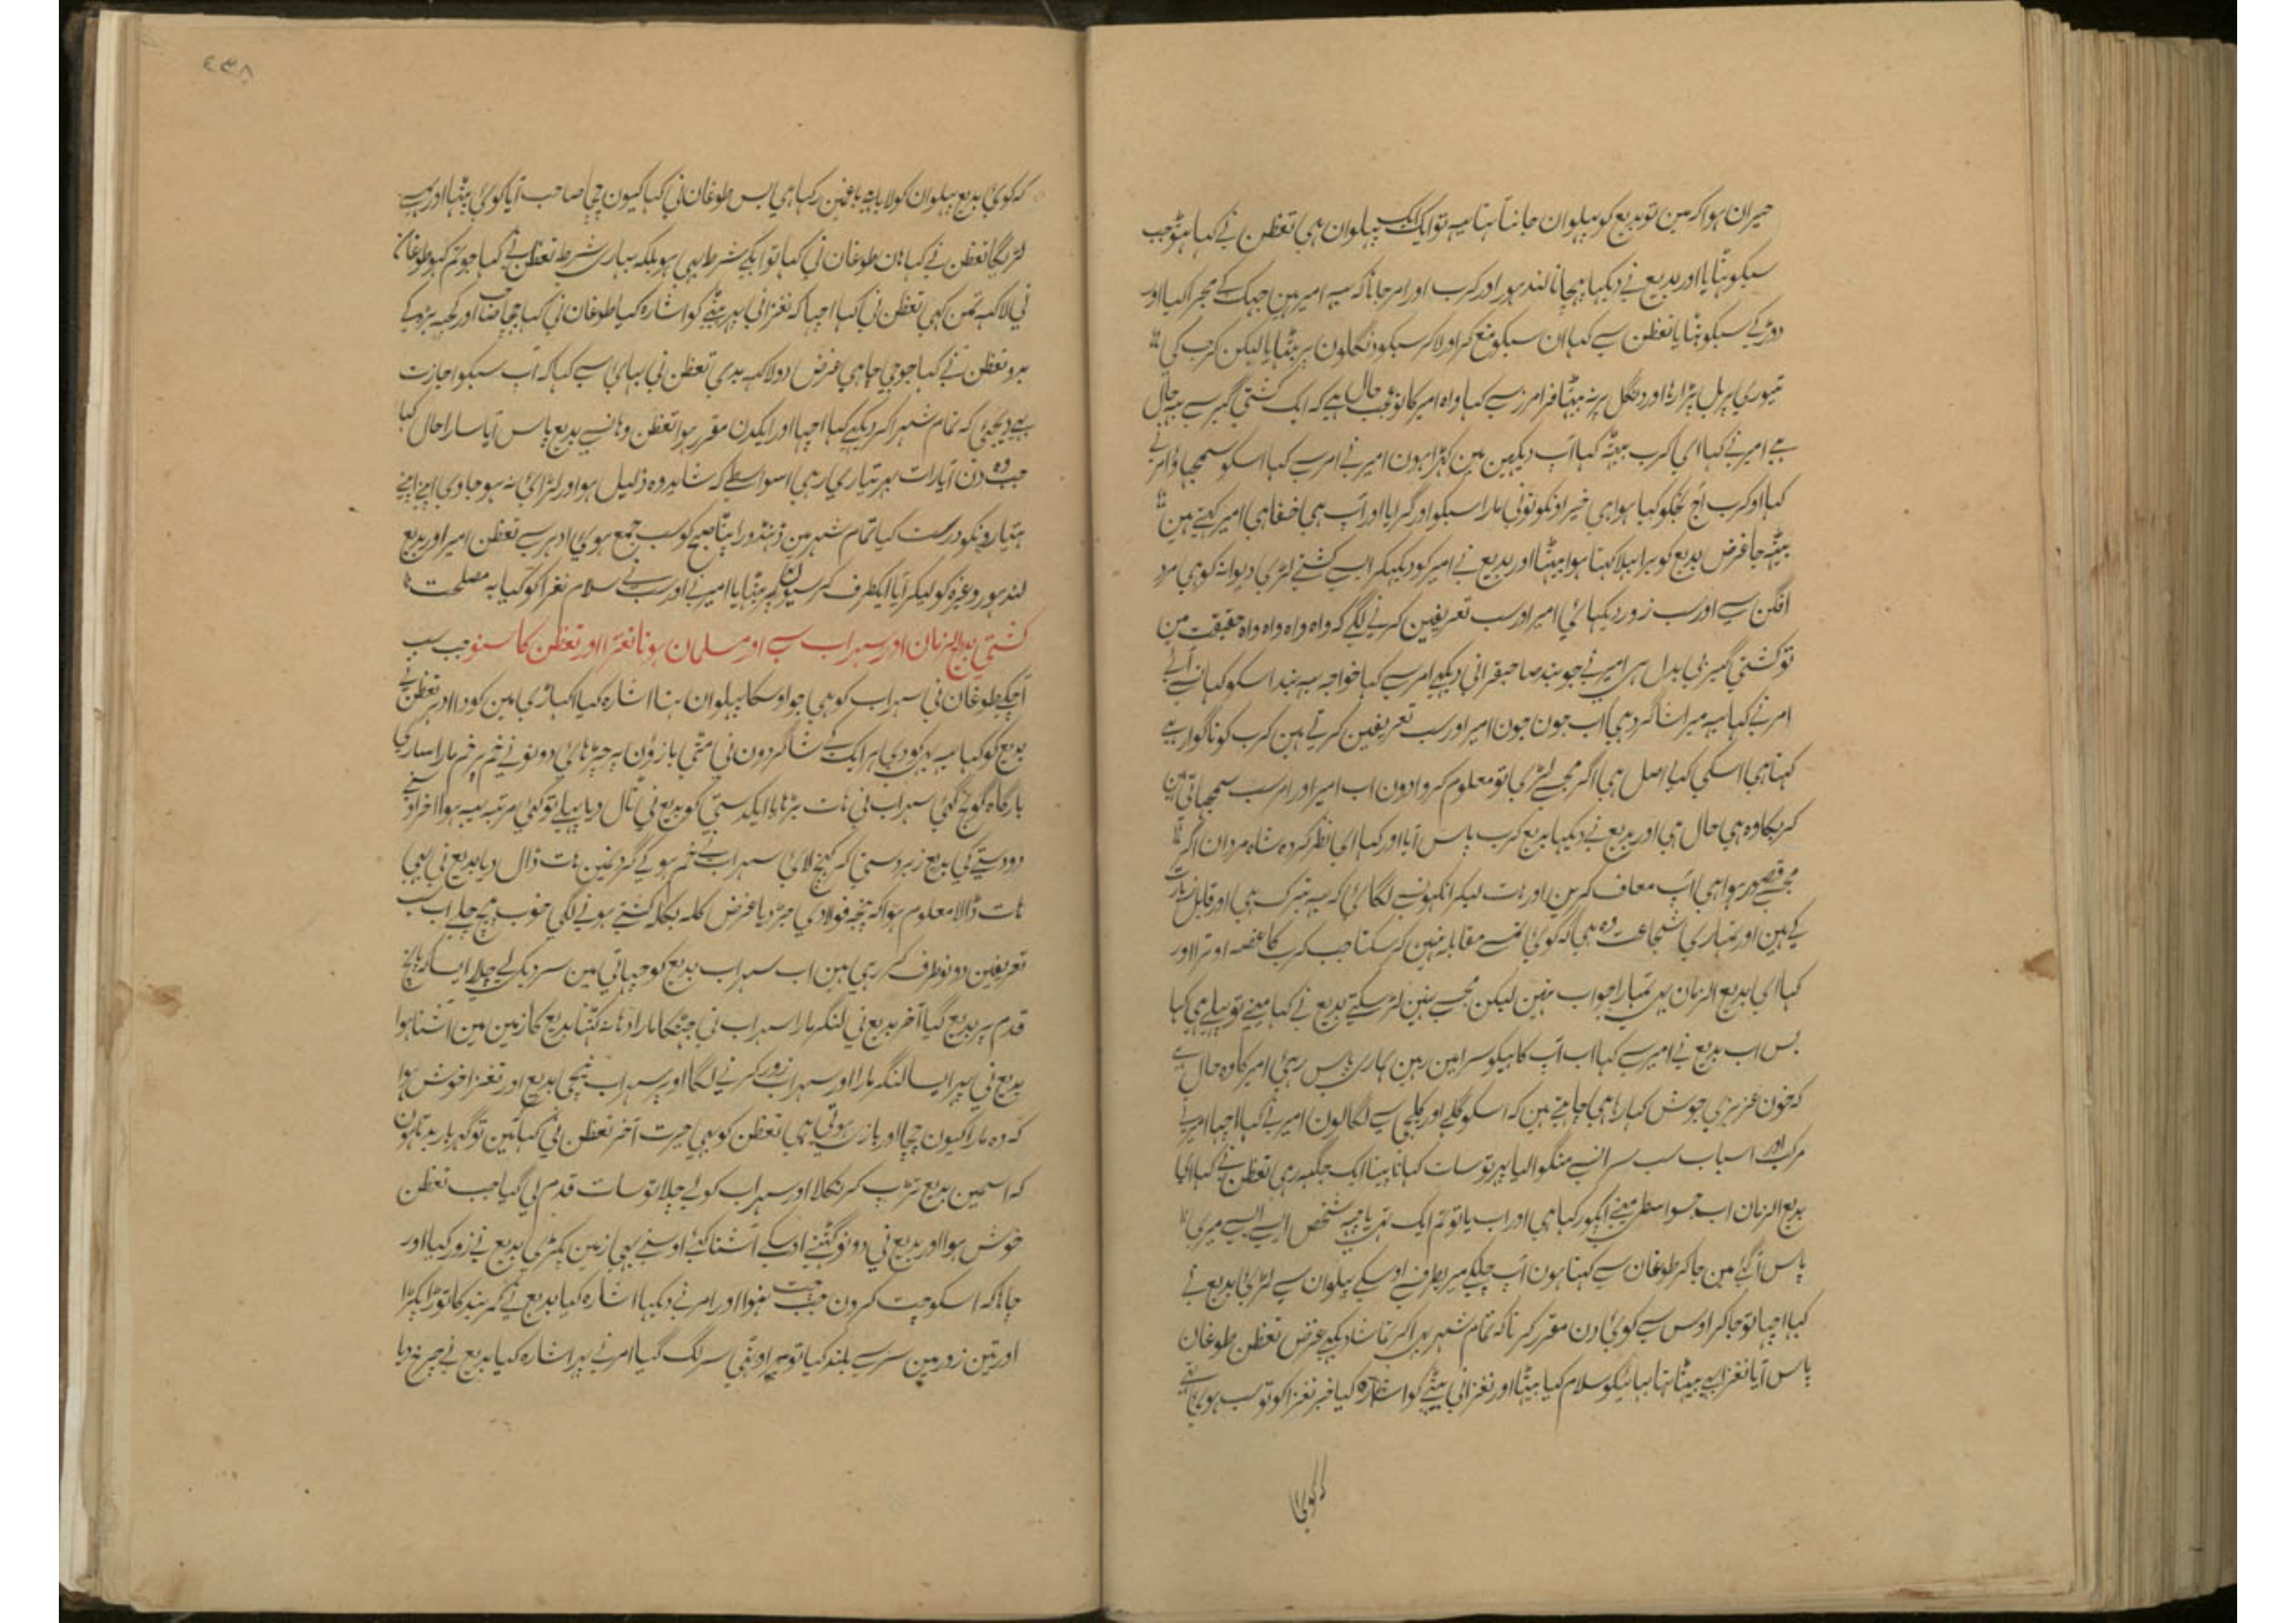 حیران ہوا کہ مین تو بدیع کو پہلوان جانتا تہا یہ تو ایک ایک پہلوان ہی تغظن نے کہا ہو جب
سبکو بٹہایا اور بدیع نے دیکہا پہچانا لندہور اور کرب اور امر جانا کہ یہ امیر ہین جہک کے مجرا کیا اور
دوڑ کے سبکو بٹہایا تغظن سے کہا ان سبکو منع کر اور لاکر سبکو دنگلون پر بٹہایا لیکن کرب کی
تیوری پر بل پڑا رہا اور دنگل پر نہ بیٹہا فرامرز سے کہا واہ امیر کا تو عجب حال ہے کہ ایک کشتی گیر سے یہ حال
ہے امیر نے کہا ای کرب بیٹہ کہا آپ دیکہین مین کہڑا ہون امیر نے امر سے کہا اسکو سمجہاؤ امر نے
کہا او کرب آج تجکو کیا ہوا ہی خیر اونکو تونی مارا سبکو اور گرایا اور آپ ہی خفا ہی امیر کہتے ہین
بیٹہ جا غرض بدیع کو برا بہلا کہتا ہوا بیٹہا اور بدیع نے امیر کو دیکہکر ایسے کشتی لڑی دیوانہ کوہی مرد
افگن سے اور سب زور دیکہائی امیر اور سب تعریفین کرنے لگے کہ واہ واہ واہ واہ حقیقت مین
تو کشتی گیر بی بدل ہی امیر نے جو بند صاحبقرانی دیکہے امر سے کہا خواجہ یہ بند اسکو کہان سے آئے
امر نے کہا یہ میرا شاگرد ہی اب جون جون امیر اور سب تعریفین کرتے ہین کرب کو ناگوار ہے
کہتا ہی اسکی کیا اصل ہی اگر مجہسے لڑی تو معلوم کروادون اب امیر اور امر سب سمجہاتی ہین
کرب کا وہ ہی حال ہی اور بدیع نے دیکہا بدیع کرب پاس آیا اور کہا ای نظر کردہ شاہ مردان اگر
مجہسے قصور ہوا ہی آپ معاف کرین اور ہات لیکر انکہونسے لگائی کہ یہ متبرک ہی اور قابل زیارت
کے ہین اور تمہاری شجاعت وہ ہی کہ کوئی تمسے مقابلہ نہین کر سکتا جب کرب کا غصہ اوترا اور
کہا ای بدیع الزمان بہی تمہارا جواب نہین لیکن مجہسے نہین لڑ سکتے بدیع نے کہا مینے تو پہلے ہی کہا
بس اب بدیع نے امیر سے کہا اب آپ کاہیکو سرا مین رہین ہماری پاس رہئی امیر کا وہ حال ہے
کہ خون عزیزی جوش کہا رہا ہی چاہتے ہین کہ اسکو گلے اور کلیجی سے لگالون امیر نے کہا اچہا امیر نے
مرکب اور اسباب سب سرا سے منگوا لیا پہر تو سات کہانا پینا ایک جگہہ رہی تغظن نے کہا ای
بدیع الزمان اب جسواسطے مینے رکہا ہی اور اب یا تو تم ایک تہی یا چہہ شخص ایسے ایسے میری
پاس آگئی مین جاکر طوغان سے کہتا ہون آپ چلکے میری طرف سے اوسکے پہلوان سے لڑئی بدیع نے
کہا اچہا تو جاکر اوس سے کوئی دن مقرر کر تاکہ تمام شہر بہی آکر تماشا دیکہے غرض تغظن طوغان
پاس آیا نغزا بہی بیٹہا تہا بہائیکو سلام کیا بیٹہا اور نغزانی بیٹے کو اشارہ کیا خبر نغزا کو تو سب ہوئی تہی
کہ کوئی
۴۳۸
کہ کوئی بدیع پہلوان کو لایا ہے باغین رکہا ہی بس طوغان نی کہا کیون چچا صاحب آیا کوئی بیٹہا اور ہے
لڑیگا تغظن نے کہا ہان طوغان نی کہا تو ایکے شرط بہی ہو بلکہ بہاری شرط تغظن نے کہا جو تم کہو طوغان
نی لاکہہ تمن کہی تغظن نی کہا اچہا کہ نغزانی پہر بیٹے کو اشارہ کیا طوغان نی کہا چچا صاحب اور کچہہ بڑہ کے
بدو تغظن نے کہا جو جی چاہی غرض دو لاکہہ بدی تغظن نی بہائی سے کہا کہ آپ سبکو اجازت
دیجئی کہ تمام شہر آکر دیکہے کہا اچہا اور ایکدن مقرر ہوا تغظن وہانسے بدیع پاس آیا سارا حال کہا
جب وہ دن آیا رات بہر تیاری رہی اسواسطے کہ شاید وہ ذلیل ہو اور لڑائی نہ ہو جاوی اپنے اپنے
ہتیارونکو درست کیا تمام شہر مین ڈہنڈورا پیٹا صبح کو سب جمع ہوئی ادہر سے تغظن امیر اور بدیع
لندہور وغیرہ کو لیکر آیا ایکطرف کرسیون پر بٹہایا امیر نے اور سب نے سلام نغزا کو کیا بہ مصلحت
کشتی بدیع الزمان اور سہراب سے اور مسلمان ہونا نغزا اور تغظن کا سنو جب سب
آچکے طوغان نی سہراب کوہی جو اوسکا پہلوان تہا اشارہ کیا اکہاڑی مین کودا ادہر تغظن نے
بدیع کو کہا یہ بہی کودی ہر ایک کے شاگردون نی مٹی بازؤن پر چڑہائی دونونے خم پر خم مارا ساری
بارگاہ گونج گئی سہراب نی ہات بڑہایا ایکدستی کو بدیع نی ٹال دیا پہلے تو کئی مرتبہ یہہ ہوا آخر اوسنے
دو دستے کی بدیع زبردستی کر کہینچ لائی سہراب نے خم ہو کے گردنمین ہات ڈال دیا بدیع نی بہی
ہات ڈالا معلوم ہوا کہ پنجہ فولادی جڑ دیا غرض کلہ بکلہ کشتی ہونے لگی خوب پیچ چلے اب سب
تعریفین دونوطرف کر رہی ہین اب سہراب بدیع کو چہاتی مین سر دیکر لے چلا ایسا کہ پانچ
قدم پر بدیع گیا آخر بدیع نی لنگر مارا سہراب نی جہٹکا مارا آدہا نہ گہٹنا بدیع کا زمین مین آشنا ہوا
بدیع نی پہر ایسا لنگر مارا اور سہراب زور کرنے لگا اوپر سہراب نیچی بدیع اور نغزا خوش ہوا
کہ وہ مارا کیون چچا اور بازی ہوتی ہی تغظن کو بہی حیرت آخر تغظن نی کہا مین تو گہر بار بدتا ہون
کہ اسمین بدیع تڑپ کر نکلا اور سہراب کو لے چلا تو سات قدم لی گیا جب تغظن
خوش ہوا اور بدیع نی دونو گہٹنے اوسکے آشنا کئی اوسنے بہی زمین پکڑی بدیع نے زور کیا اور
چاہا کہ اسکو چت کردن جب چت نہوا اور امر نے دیکہا اشارہ کیا بدیع نے کمر بند کا توڑا پکڑا
اور تین زور مین سر سے بلند کیا توہی اوفی سر لگ گیا امر نے پہر اشارہ کیا بدیع نے چرخ دیا